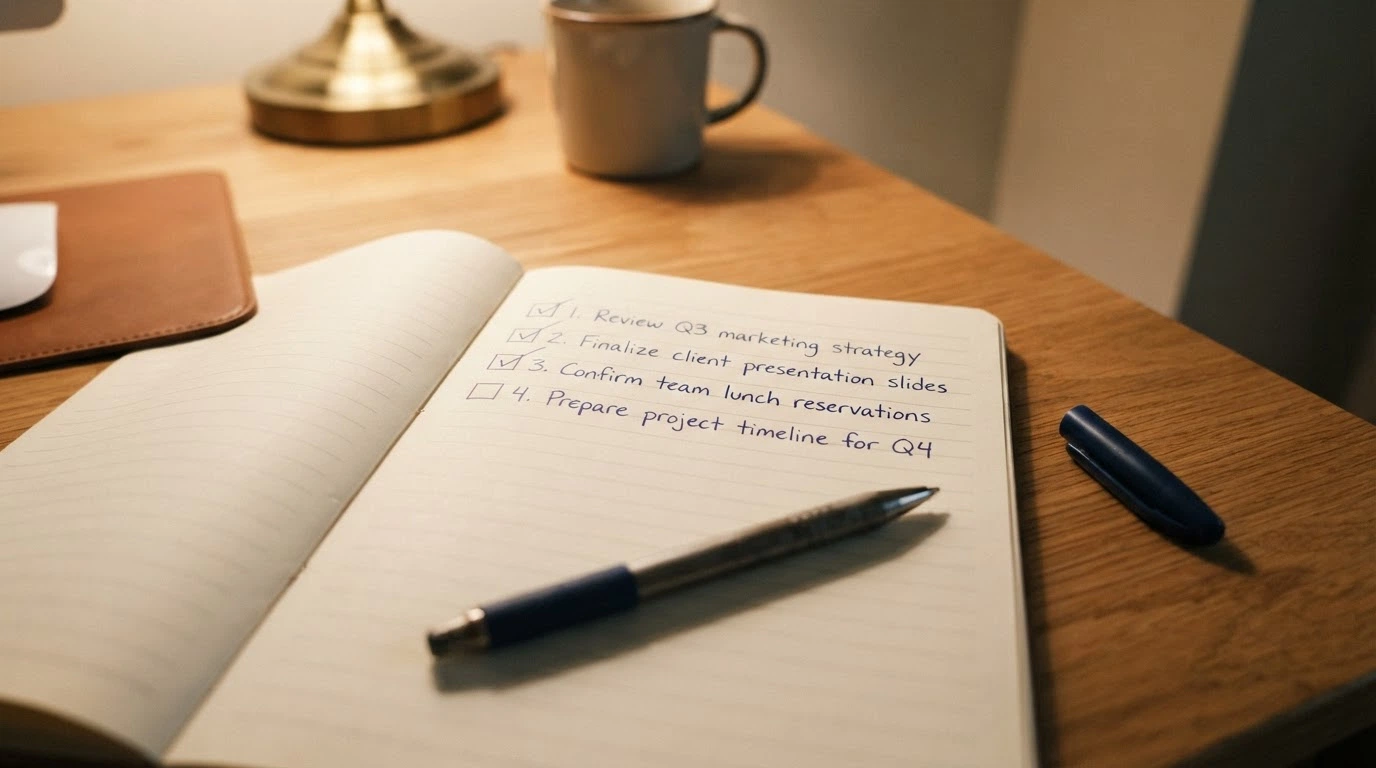 ☑ 1. Review Q3 marketing strategy
☑ 2. Finalize client presentation slides
☑ 3. Confirm team lunch reservations
☐ 4. Prepare project timeline for Q4